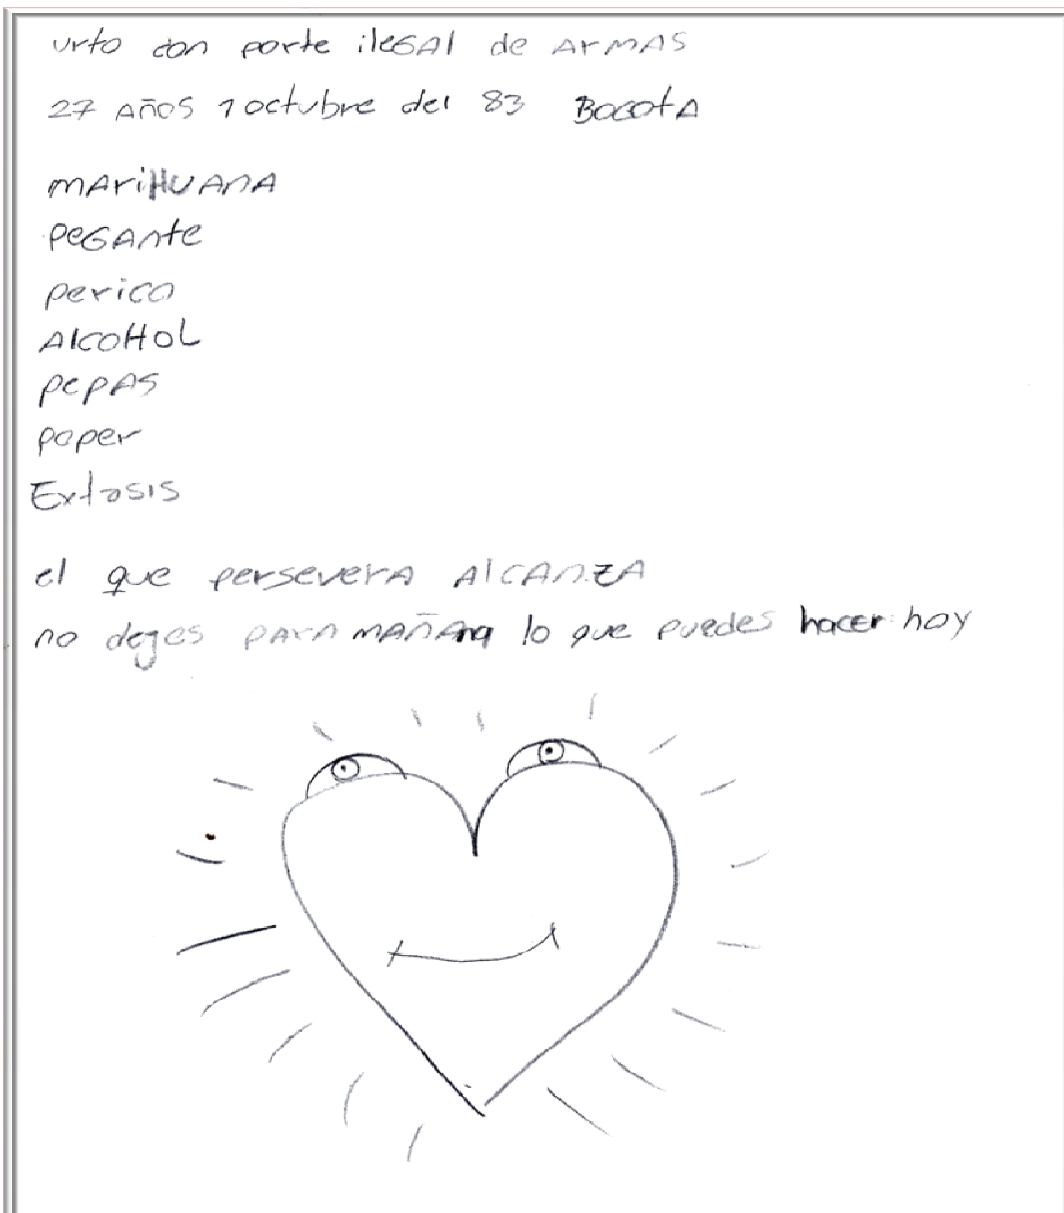 urto con porte ileGAl de ArmAS
27 AñOS 1 octubre del 83 BOGOtA
mAriHUAnA
PeGAnte
perico
AlcoHoL
PepAS
poper
Extasis
el que perseverA AlCAnZA
no dejes pArA mAñAna lo que puedes hacer hoy